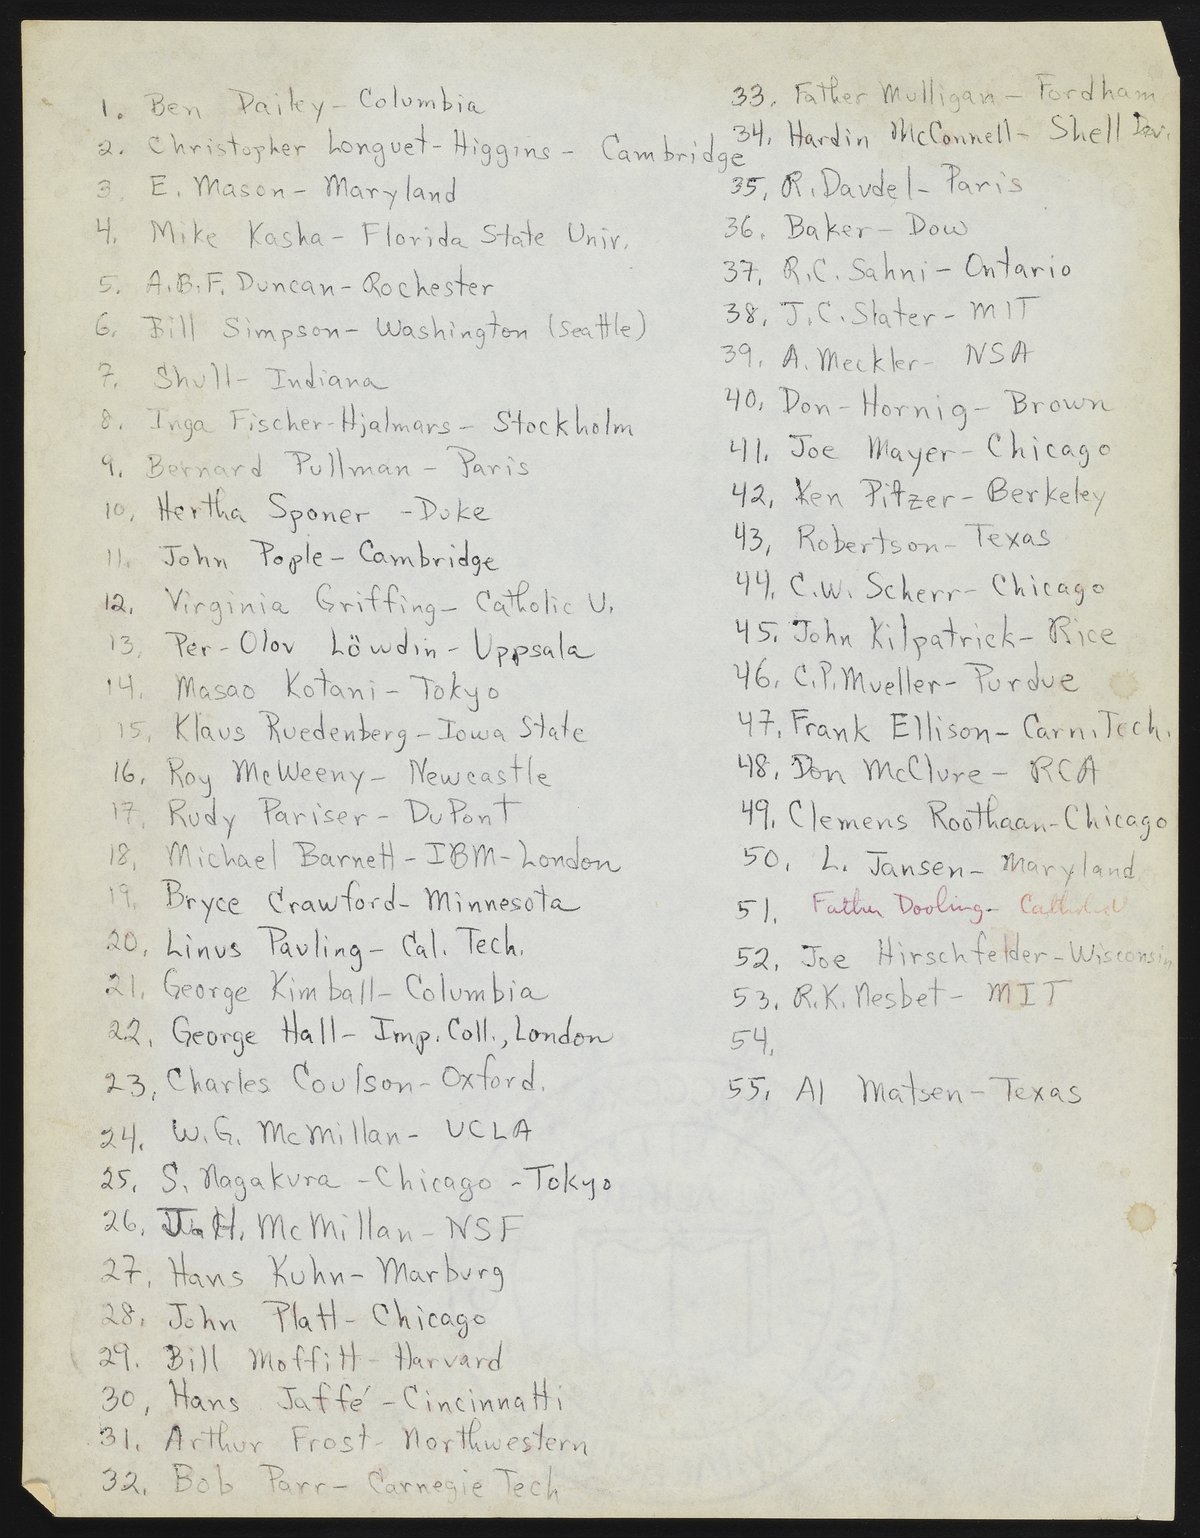 1. Ben Dailey - Columbia
2. Christopher Longuet-Higgins - Cambridge
3. E. Mason - Maryland
4. Mike Kasha - Florida State Univ.
5. A.B.F. Duncan - Rochester
6. Bill Simpson - Washington (Seattle)
7. Shull - Indiana
8. Inga Fischer-Hjalmars - Stockholm
9. Bernard Pullman - Paris
10. Hertha Sponer - Duke
11. John Pople - Cambridge
12. Virginia Griffing - Catholic U.
13. Per-Olov Löwdin - Uppsala
14. Masao Kotani - Tokyo
15. Klaus Ruedenberg - Iowa State
16. Roy McWeeny - Newcastle
17. Rudy Pariser - DuPont
18. Michael Barnett - IBM - London
19. Bryce Crawford - Minnesota
20. Linus Pauling - Cal. Tech.
21. George Kimball - Columbia
22. George Hall - Imp. Coll., London
23. Charles Coulson - Oxford.
24. W.G. McMillan - UCLA
25. S. Nagakura - Chicago - Tokyo
26. McMillan - NSF
27. Hans Kuhn - Marburg
28. John Platt - Chicago
29. Bill Moffitt - Harvard
30. Hans Jaffé - Cincinnatti
31. Arthur Frost - Northwestern
32. Bob Parr - Carnegie Tech
33. Father Mulligan - Fordham
34. Hardin McConnell - Shell Dev.
35. R. Daudel - Paris
36. Baker - Dow
37. R.C. Sahni - Ontario
38. J.C. Slater - MIT
39. A. Meckler - NSA
40. Don-Hornig - Brown
41. Joe Mayer - Chicago
42. Ken Pitzer - Berkeley
43. Robertson - Texas
44. C.W. Scherr - Chicago
45. John Kilpatrick - Rice
46. C.P. Mueller - Purdue
47. Frank Ellison - Carn. Tech.
48. Don McClure - RCA
49. Clemens Roothaan - Chicago
50. L. Jansen - Maryland
51. Father Dooling - Catholic U
52. Joe Hirschfelder - Wisconsin
53. R.K. Nesbet - MIT
54.
55. Al Matsen - Texas